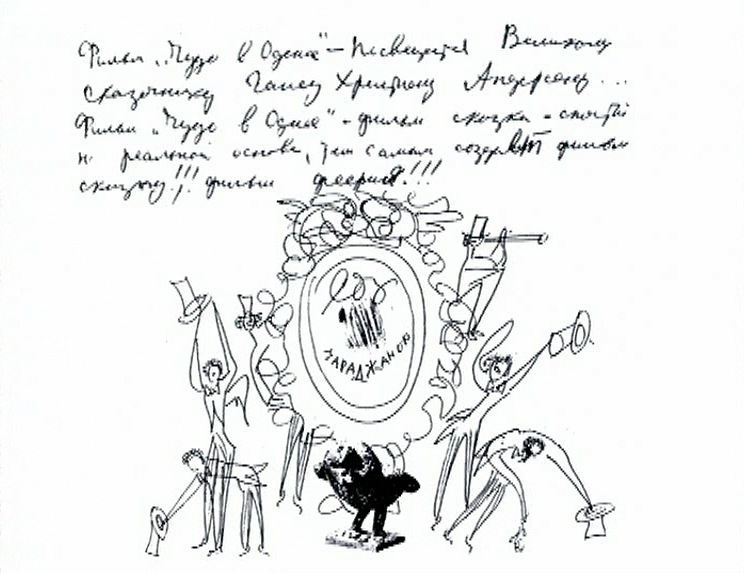 Фильм „Чудо в Оденсе" – посвещается Великому
сказочнику Гансу Христиану Андерсену...
Фильм „Чудо в Оденсе" – фильм сказка – снятый
на реальной основе, тем самым фильм
сказку!!! фильм феерия!!!
ПАРАДЖАНОВ